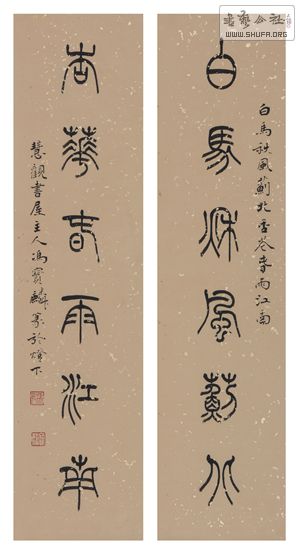 書藝公社
WWW.SHUFA.ORG
白馬秋風薊北杏花春雨江南
白馬秋風薊北
杏華春雨江南
慧觀書屋主人馮寶麟篆於燈下